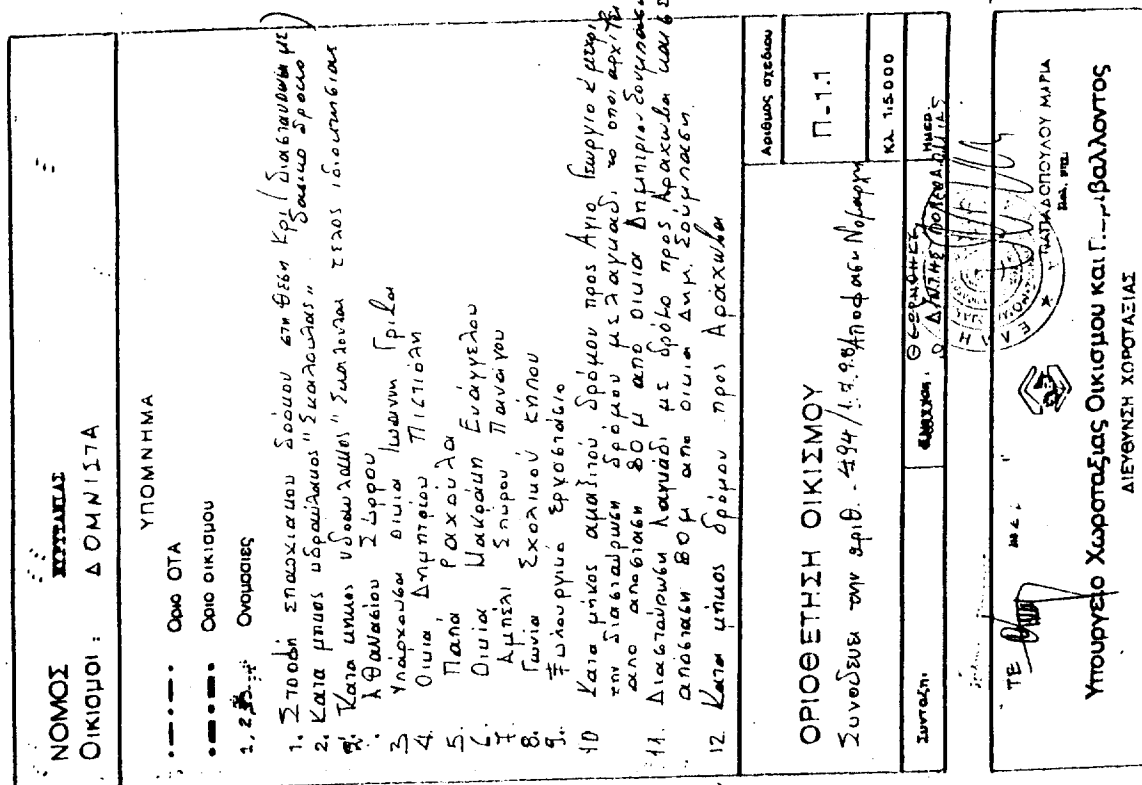 ΝΟΜΟΣ ΕΥΡΥΤΑΝΙΑΣ
Οικισμοι: ΔΟΜΝΙΣΤΑ
ΥΠΟΜΝΗΜΑ
Οριο ΟΤΑ
Οριο οικισμου
1, 2, Ονομασιες
1. επαρχιακου δρόμου στη θεση Κρι Διασταυρωση με δασικο δρομο
2. Κατα μηκος υδραύλακος "Σκαλουλας"
Κατα μηκος υδραυλακος τελος ιδιοκτησιας
Αθανασίου Σύρρου
3 Υπάρχουσα οικια Ιωαννη Γρίβα
4. Οικια Δημητρίου Πιστιόλη
5. Παπά Ραχούλα
6. Οικία Μακράκη Ευάγγελου
7 Αμπέλι Σπύρου Παναίγου
8. Γωνία Σχολικού κήπου
9. Ξυλουργικό εργοστάσιο
10 Κατα μήκος αμαξιτού δρόμου προς Αγιο Γεωργιο κ' μεχρι
την διασταύρωση δρομου με λαγκαδι το οποι αρχιζει
απο αποσταση 80 μ απο οικια Δημητριου Σουμπαση
11. Διασταύρωση λαγκάδι με δρόμο προς Αραχωβα και σε
αποσταση 80 μ απο οικια Δημ. Σουμπαση
12. Κατα μήκος δρόμου προς Αράχωβα
ΟΡΙΟΘΕΤΗΣΗ ΟΙΚΙΣΜΟΥ
Συνοδευει την αριθ. Αποφαση Νομαρχη
Αριθμος σχεδιου
Π-1.1
Κλ. 1:5.000
Συνταξη:
Ο ΔΝΤΗΣ ΠΟΛΕΟΔΟΜΙΑΣ
Ημερ.
ΠΑΠΑΔΟΠΟΥΛΟΥ ΜΑΡΙΑ
ΤΕ
Υπουργειο Χωροταξιας Οικισμου και Περιβαλλοντος
ΔΙΕΥΘΥΝΣΗ ΧΩΡΟΤΑΞΙΑΣ